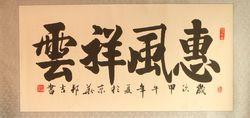 惠風祥雲
歲次甲午年夏於京華吉書